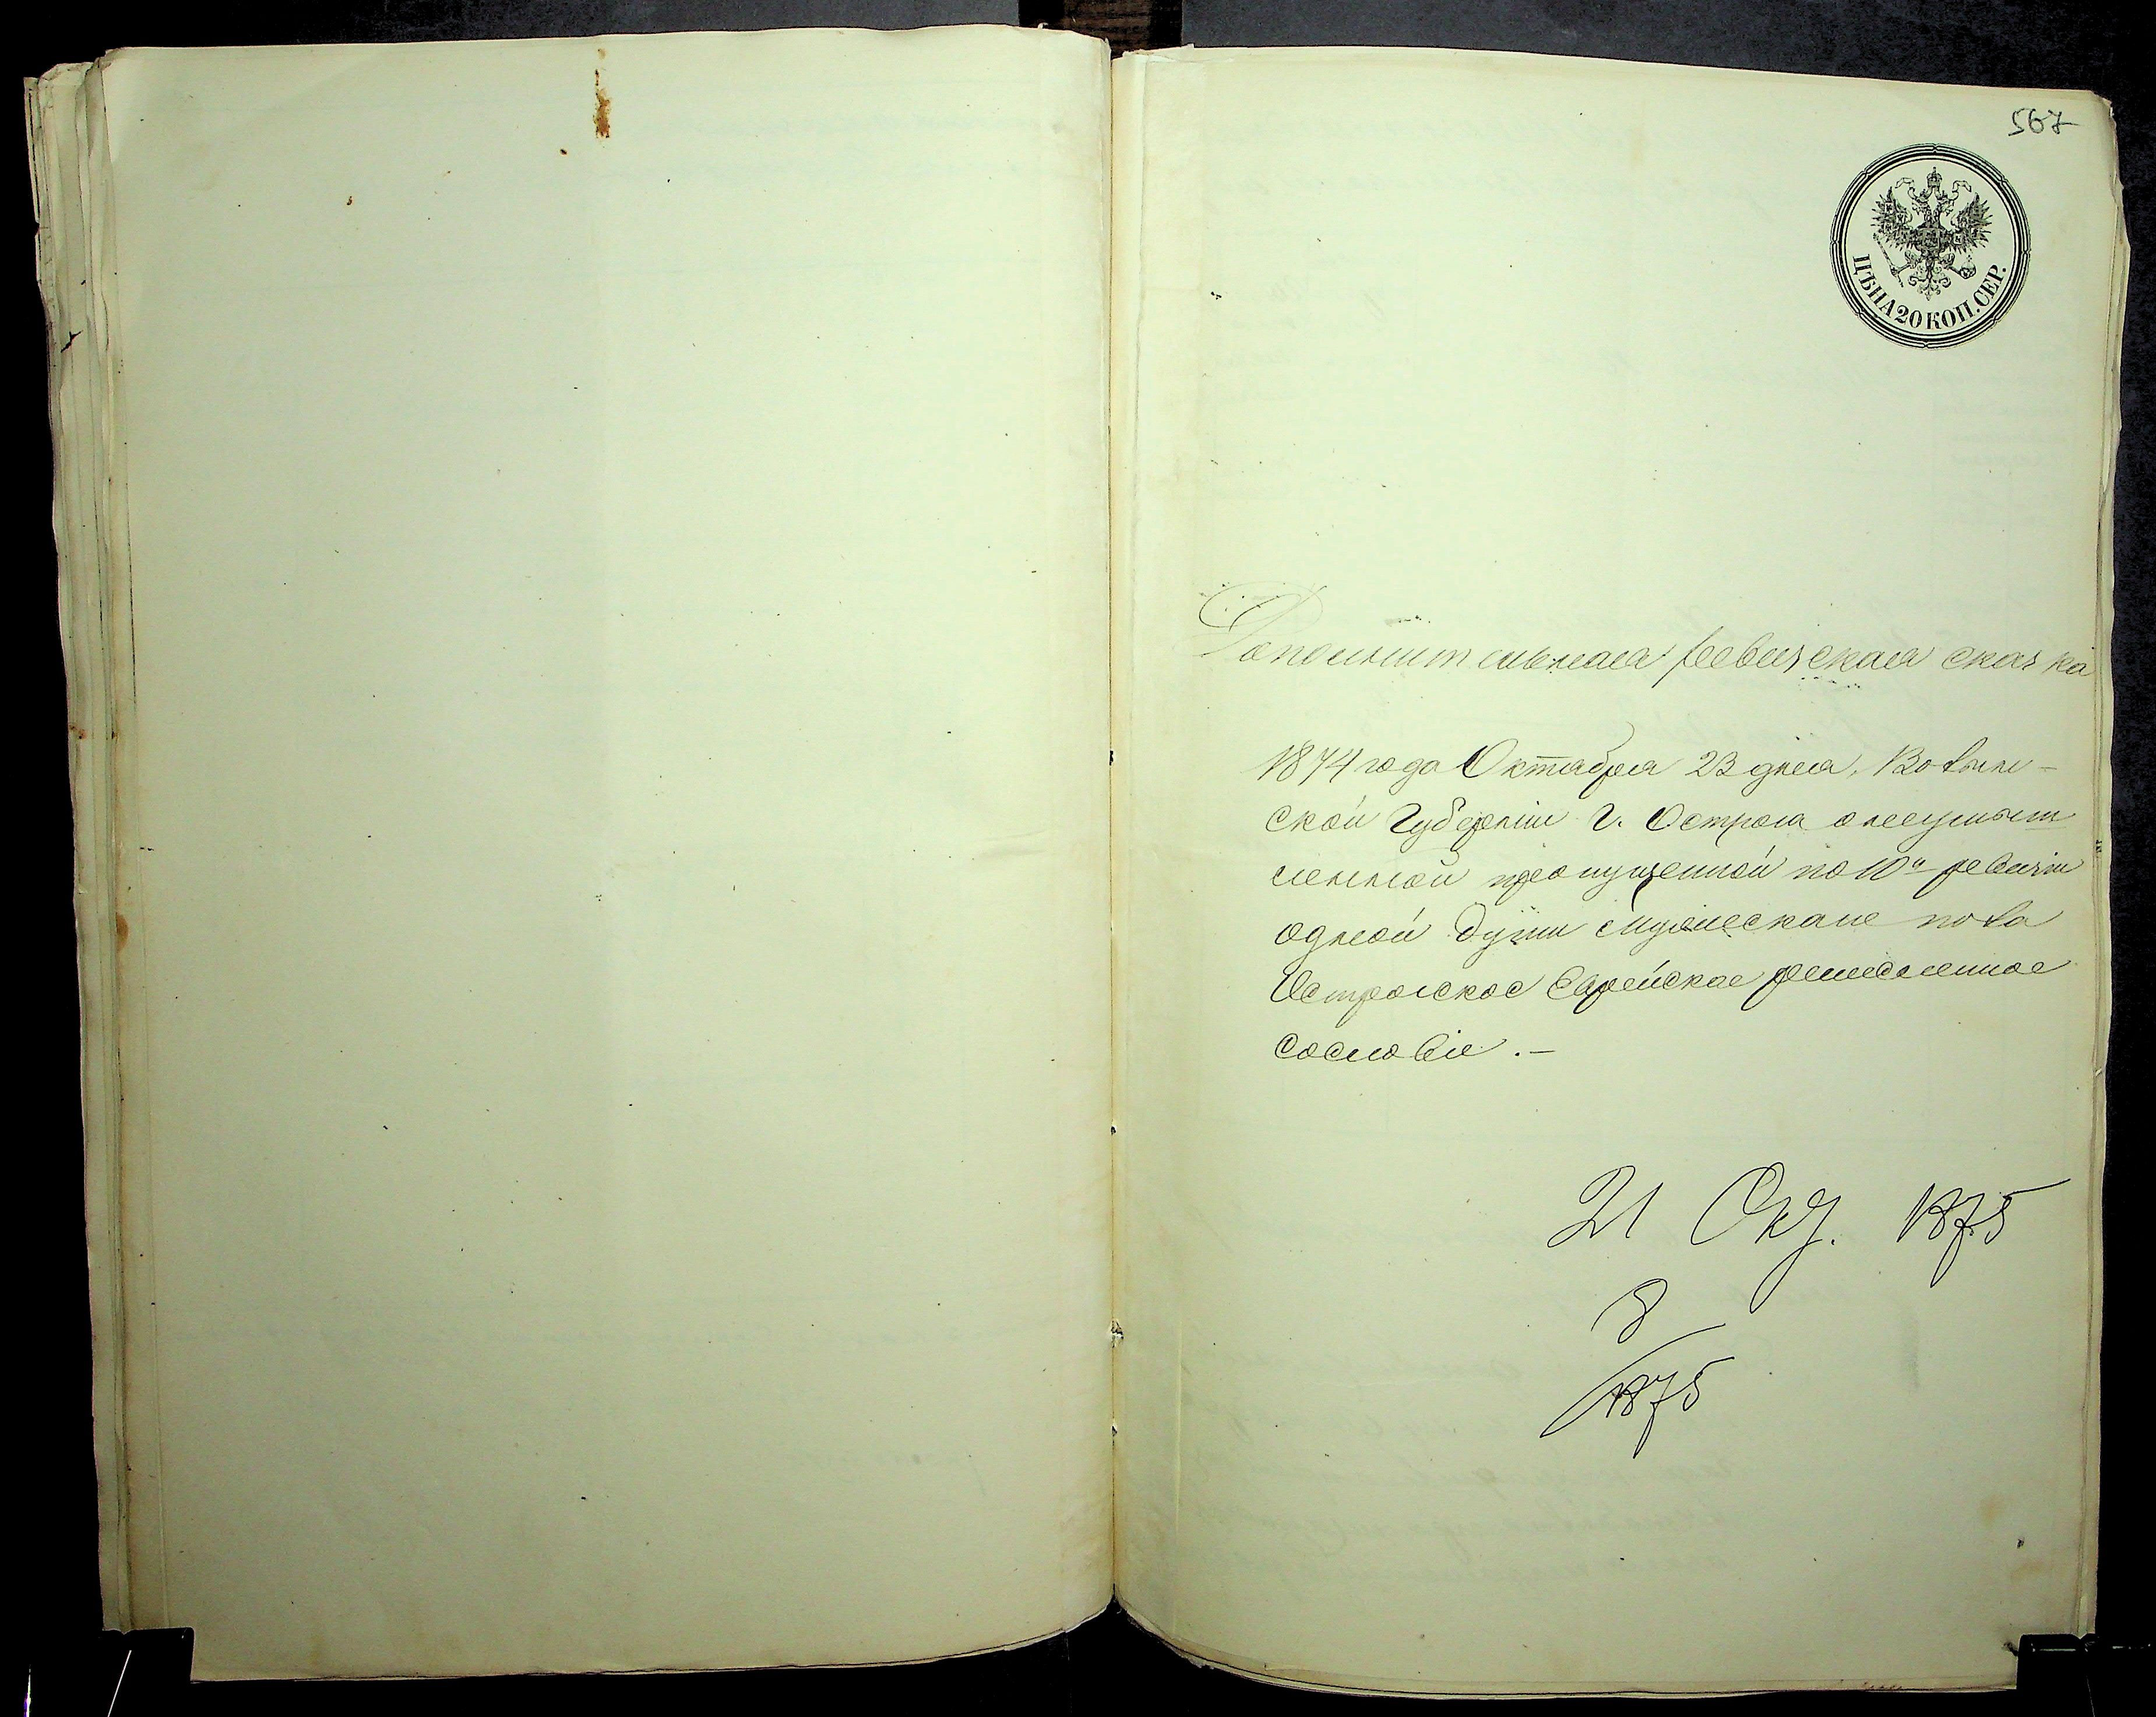 567
ЦѢНА 20 КОП. СЕР.
Дополнительная ревизская сказка
1874 года Октября 23 дня, Волын-
ской Губерніи г. Острога о неумыш
ленной пропущенной по 10й ревизіи
одной души мужескаго пола
Острожское Еврейское ремесленное
сословіе.-
21 Окт. 1875
8
1875